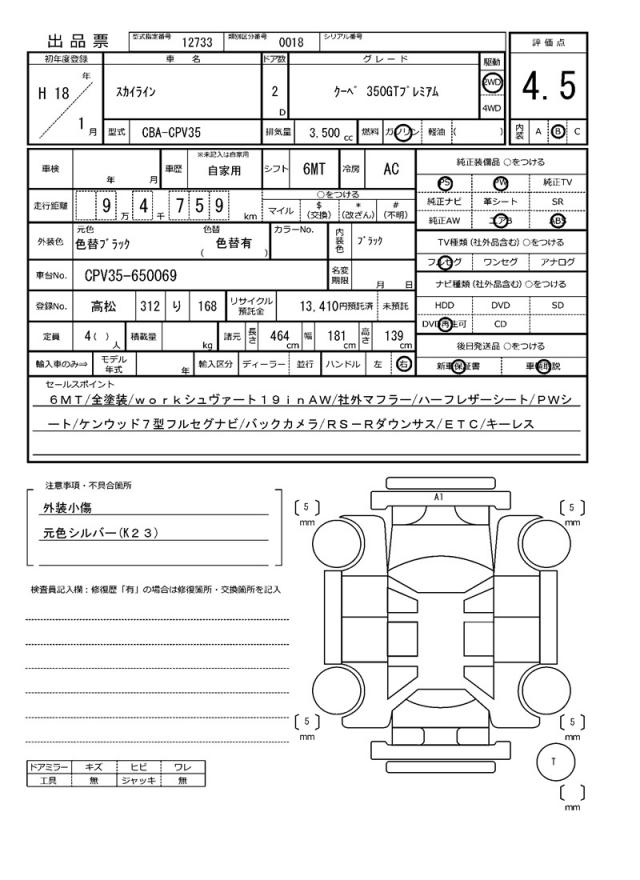 出品票 型式指定番号 12733 類別区分番号 0018 シリアル番号
評価点
4.5
内装 A B C
初年度登録 車名 ドア数 グレード 駆動
H 18 年 1 月 スカイライン 2 D クーペ 350GTプレミアム 2WD 4WD
型式 CBA-CPV35 排気量 3,500 cc 燃料 ガソリン 軽油 ( )
車検 年 月 車歴 ※未記入は自家用 自家用 シフト 6MT 冷房 AC
走行距離 9 万 4 千 7 5 9 km
○をつける
マイル $ (交換) * (改ざん) # (不明)
外装色 元色 色替ブラック 色替 ( 色替有 ) カラーNo. 内装色 ブラック
車台No. CPV35-650069 名変期限 月 日
登録No. 高松 312 り 168 リサイクル預託金 13,410円預託済 未預託
定員 4( ) 人 積載量 kg 諸元 長さ 464 cm 幅 181 cm 高さ 139 cm
輸入車のみ⇒ モデル年式 年 輸入区分 ディーラー 並行 ハンドル 左 右
純正装備品 ○をつける
PS PW 純正TV
純正ナビ 革シート SR
純正AW エアB ABS
TV種類(社外品含む)○をつける
フルセグ ワンセグ アナログ
ナビ種類(社外品含む)○をつける
HDD DVD SD
DVD再生可 CD
後日発送品 ○をつける
新車保証書 車輌取説
セールスポイント
6MT/全塗装/workシュヴァート19inAW/社外マフラー/ハーフレザーシート/PWシ
ート/ケンウッド7型フルセグナビ/バックカメラ/RS-Rダウンサス/ETC/キーレス
注意事項・不具合箇所
外装小傷
元色シルバー(K23)
検査員記入欄：修復歴「有」の場合は修復箇所・交換箇所を記入
ドアミラー キズ ヒビ ワレ
工具 無 ジャッキ 無
A1
5 mm
5 mm
5 mm
5 mm
T
mm